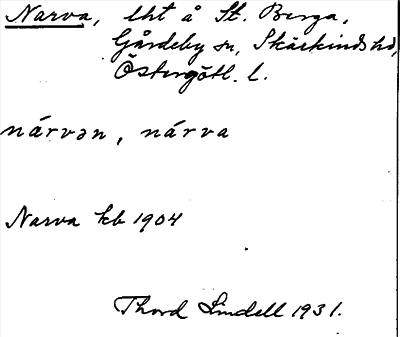 Narva, lht å St. Berga,
Gårdeby sn, Skärkinds hd,
Östergötl. l.
nárvən, nárva
Narva kb 1904
Thord Lindell 1931.